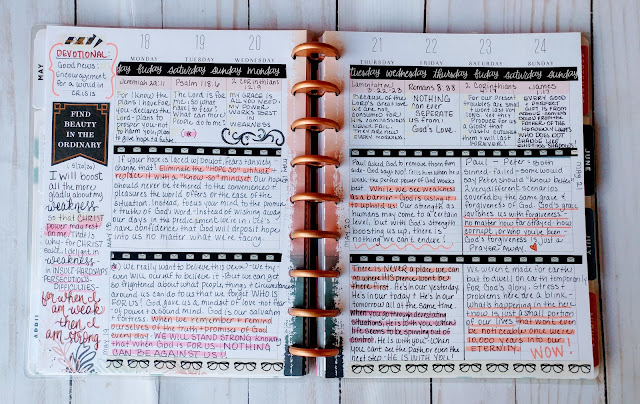 DEVOTIONAL:
Good news:
Encouragement
for a world in
CRISIS
MAY
FIND
BEAUTY
IN THE
ORDINARY
(5/20/20)
I will boast
all the more
gladly about my
weakness
so that CHRIST
power may rest
on me. That is
why- for CHRIST
sake, I delight in
weakness-
in INSULT HARDSHIPS
PERSECUTIONS-
DIFFICULTIES-
for when I
am weak
then I
am strong
APRIL
18
19
20
MONDAY
TUESDAY
WEDNESDAY
day friday saturday sunday monday
Jeremiah 29:11
For I know the
plans I have for
you - declares the
Lord - plans to
prosper you not
to harm you, plan
to give hope + a future
Psalm 118:6
The Lord is for
me; so what
have I to fear?
What can mere
mortals do to me?
2 Corinthians
12:9
MY GRACE IS
ALL YOU NEED;
MY POWER
WORKS BEST
IN
WEAKNESS
If your hope is laced w/doubt, fears + anxiety
change that! Eliminate the "HOPE SO" attitude
replace it with a "know-so" mindset. Our HOPE
should never be tethered to the convenience +
pleasures the world offers or the ease of the
situation. Instead, focus your mind to the power
+ truth of God's Word. Instead of wishing away
our days in the predicament we're in - let's
have confidence that God will deposit hope
into us no matter what we're facing.
We really want to believe this verse. We try
+ even will ourself to believe it - But we can get
so frightened about what people, things, + circumstances
around us can do to us that we forget WHO IS
FOR US! God gave us a mindset of love not fear
- of power + a sound mind. God is our salvation
+ fortress. When we remember + remind
ourselves of the truth + promises of God
every day - WE WILL STAND STRONG knowing
that when God is FOR US - NOTHING
CAN BE AGAINST US!!
21
22
23
24
THURSDAY
FRIDAY
SATURDAY
SUNDAY
tuesday wednesday thursday friday saturday sunday
Lamentations
3:22-23
Because of the
Lord's great love
we are not
consumed for
his compassions
never fail.
They are new
every morning
Romans 8:38
NOTHING
can EVER
SEPERATE
us from
God's Love.
2 Corinthians
For our present
troubles are small
+ won't last very
long. Yet they
produce for us
a glory that vastly
outweighs them +
will last
FOREVER!
James
1:17
EVERY GOOD
+ PERFECT
GIFT IS FROM
ABOVE, COMING
DOWN FROM THE
FATHER OF THE
HEAVENLY LIGHTS
WHO DOES NOT
CHANGE LIKE
SHIFTING
SHADOWS
Paul asked GOD to remove thorn from
side - God says NO! This is when you're
weak the perfect power of God makes
best. While we see weakness
as a barrier - God is using it
to uphold us! Our strength as
humans may come to a certain
level, but with God's strength
boosting us up, there is
nothing we can't endure!
Paul - Peter - Both
sinned - failed - some would
say Peter should "know better"
2 very different scenarios
covered by the same grace +
forgiveness of God. God's grace
lavishes us with forgiveness
no matter how far strayed, how
corrupt, or who you've been -
God's forgiveness is just a
PRAYER away.
There is NEVER a place we can
go where HIS presence isn't but
there first. He's in our yesterday
He's in our today + He's in our
tomorrow all at the same time.
When you go through devastating
situations, He's both you when
life seems to be spinning out of
control, He is with you - When
you can't see the path or even the
next step - HE IS WITH YOU!
We weren't made for earth
but to dwell on earth temporarily
for God's glory. Stress +
problems here are a blink -
What's happening in the here
+ now is just a small portion
of our lives that won't even
be noticeable once we're
10,000 years into our
ETERNITY.
WOW!
JUNE